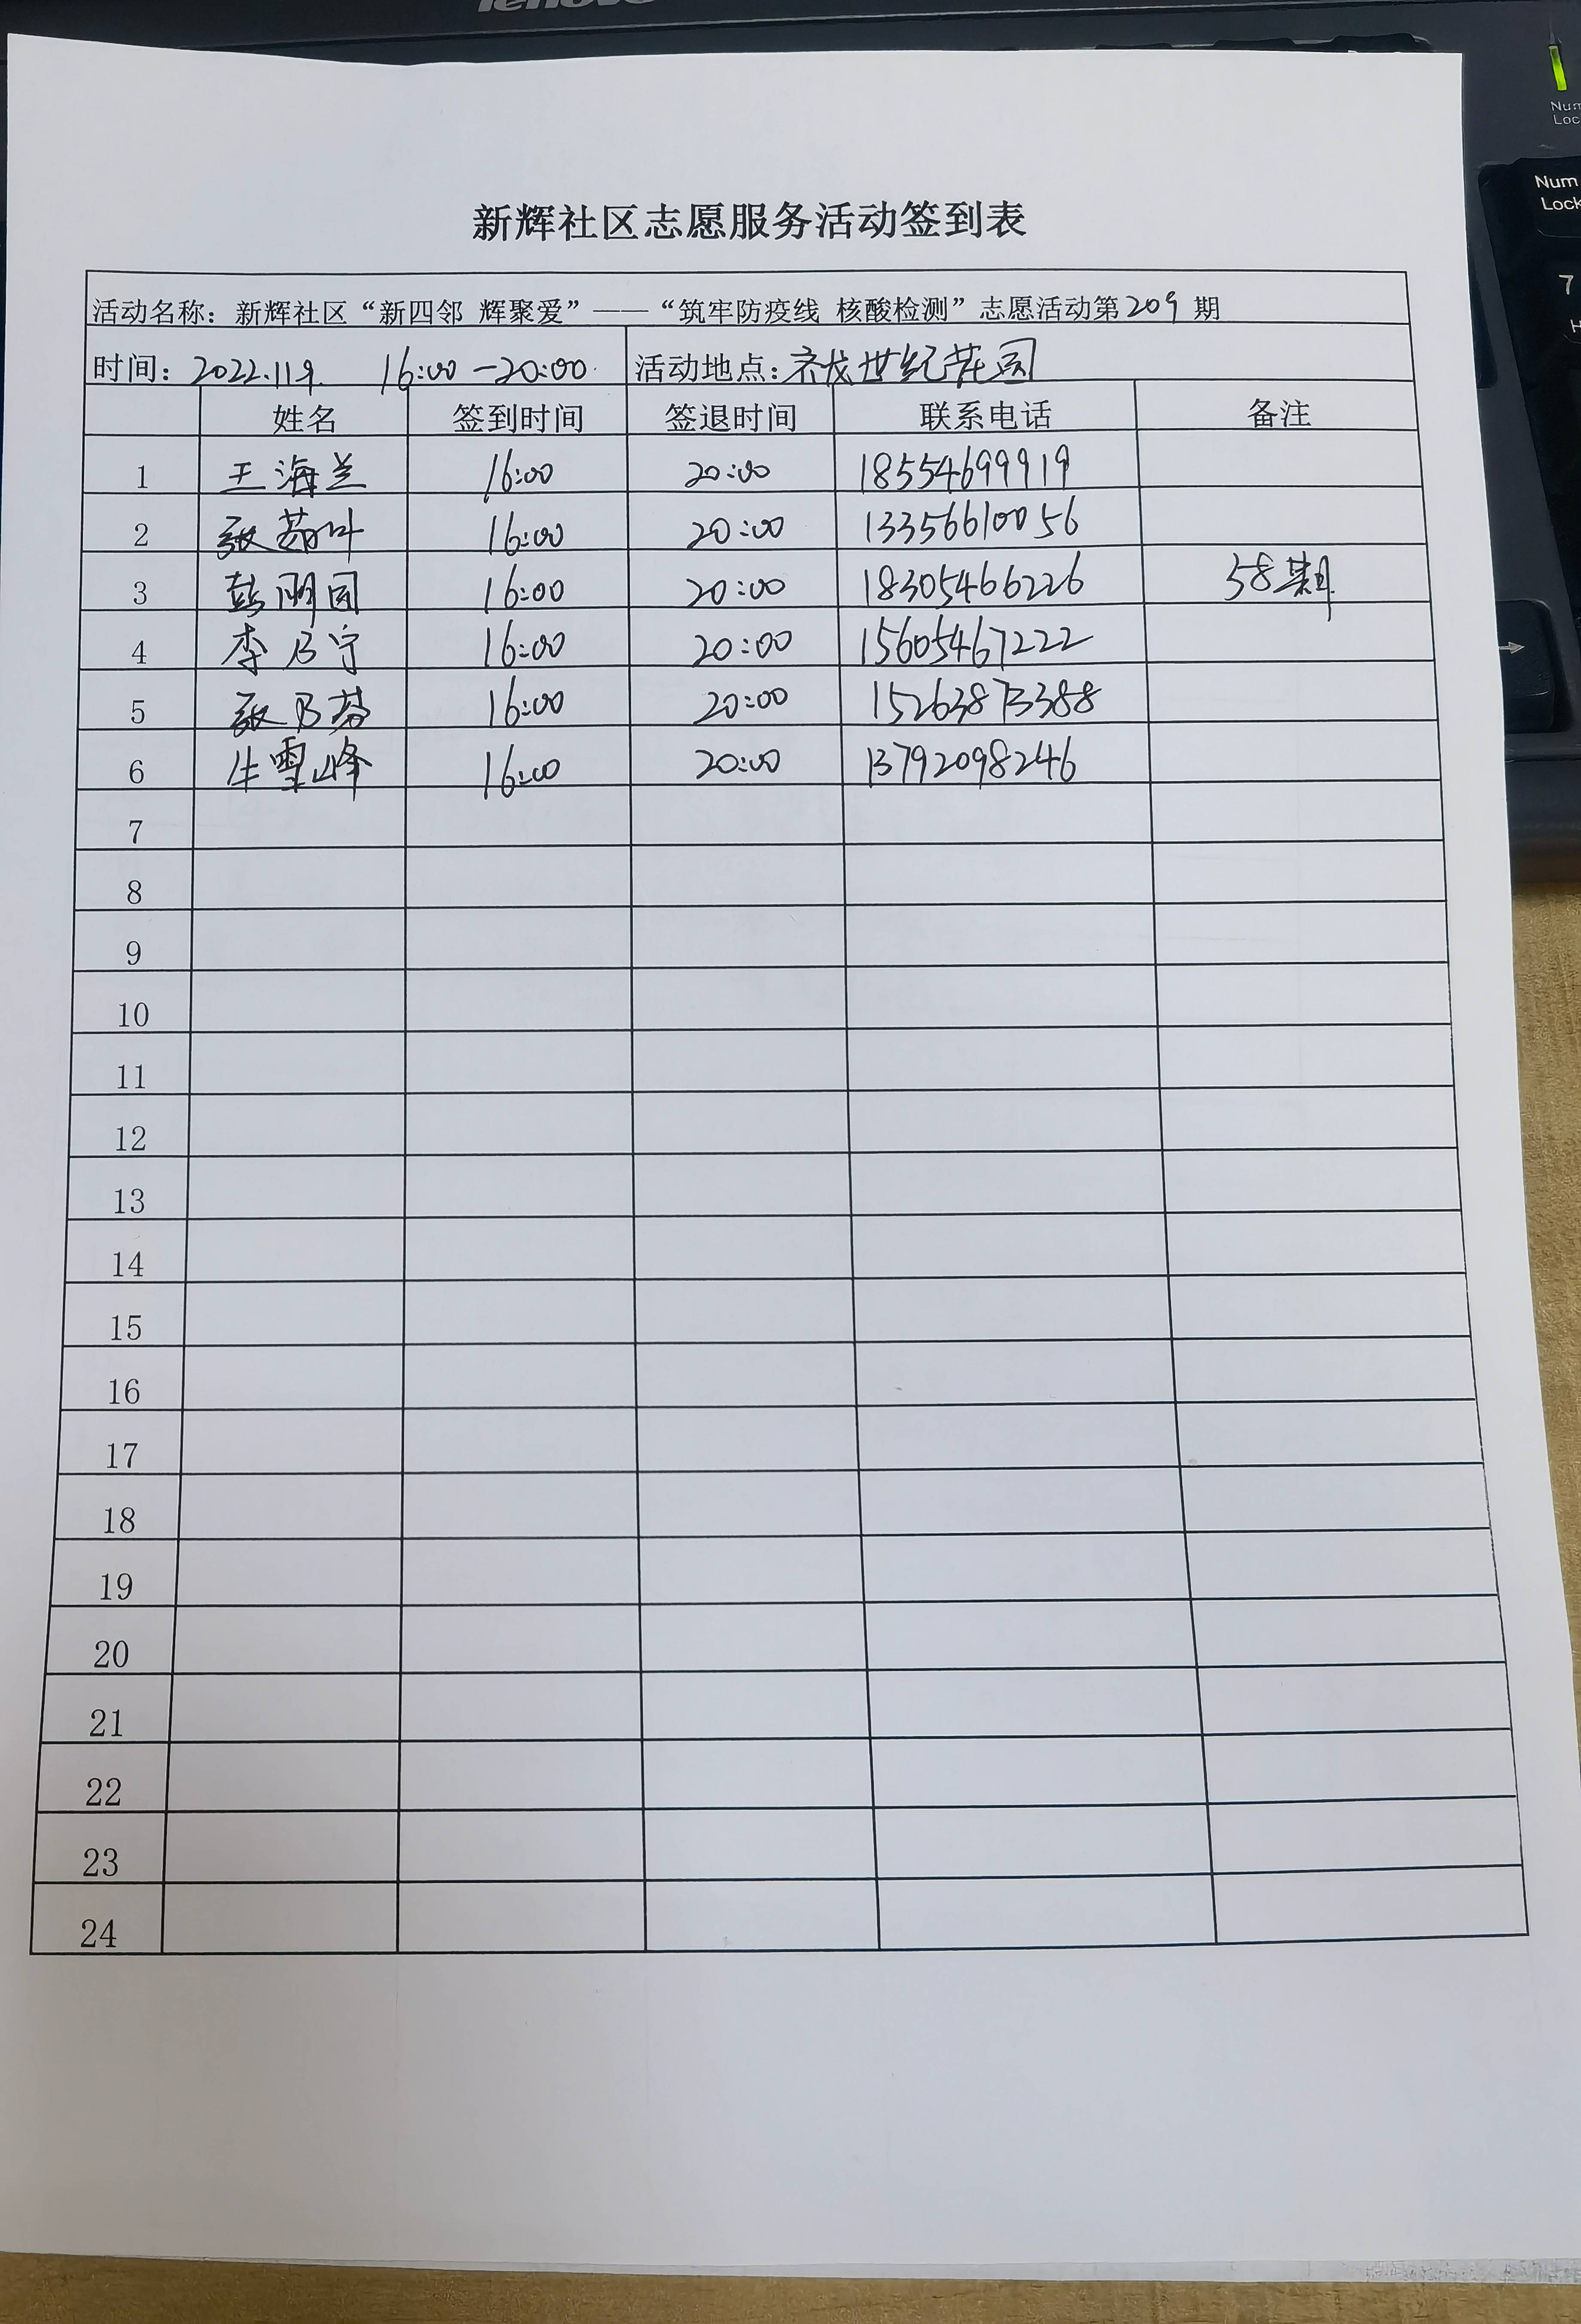 lenovo
Num
Lock
7
新辉社区志愿服务活动签到表
活动名称：新辉社区“新四邻 辉聚爱”——“筑牢防疫线 核酸检测”志愿活动第209期
时间：2022.11.9. 16:00-20:00. 活动地点：世纪花园
姓名 签到时间 签退时间 联系电话 备注
1 王海兰 16:00 20:00 18554699919
2 张茹叶 16:00 20:00 13356610056
3 彭明园 16:00 20:00 18305466226 58期
4 李乃宁 16:00 20:00 15605467222
5 张乃芬 16:00 20:00 15263873388
6 牛雪峰 16:00 20:00 13792098246
7
8
9
10
11
12
13
14
15
16
17
18
19
20
21
22
23
24